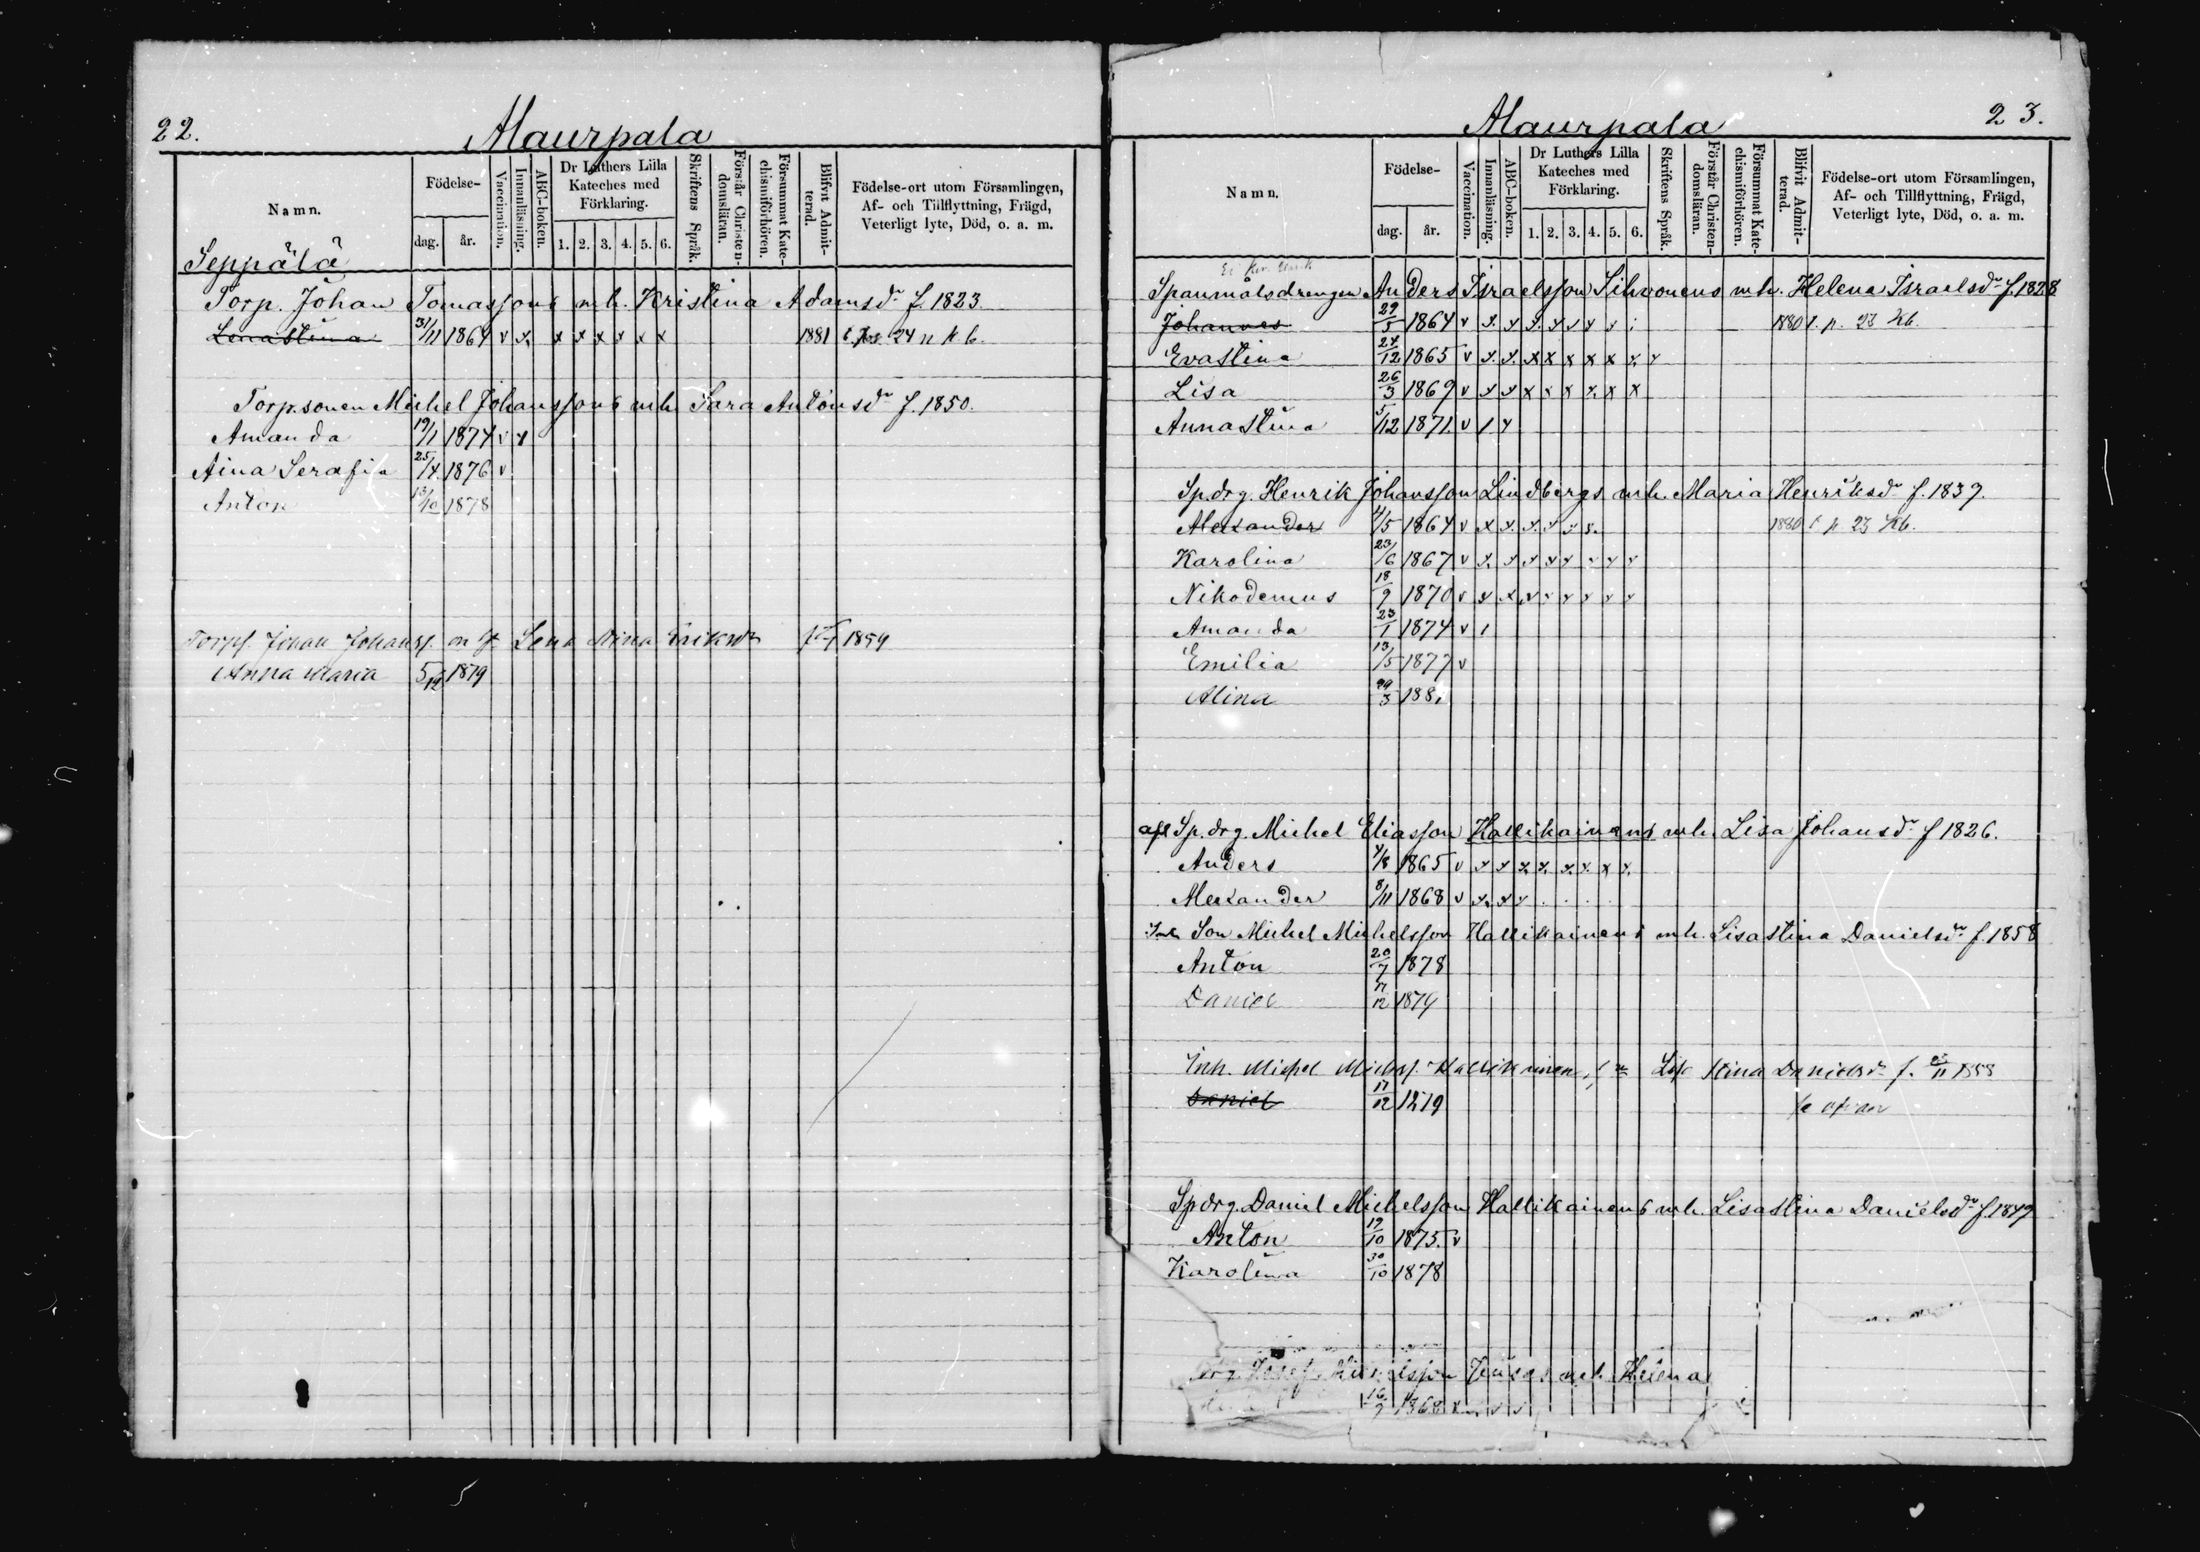 22.
Maurpala
Namn.
Födelse-
dag.
år.
Vaccination.
Innanläsning.
ABC-boken.
Dr Luthers Lilla Kateches med Förklaring.
1. 2. 3. 4. 5. 6.
Skriftens Språk.
Förstår Christendomsläran.
Försummat Katechismiförhören.
Blifvit Admitterad.
Födelse-ort utom Församlingen, Af- och Tillflyttning, Frägd, Veterligt lyte, Död, o. a. m.
Seppälä
Torp. Johan Tomassons mh. Kristina Adamsdr f. 1823.
Lenastina 31/11 1864 v x x x x x x x 1881 24 n k b.
Torp.sonen Michel Johanssons mh. Sara Antonsdr f. 1850.
Amanda 19/1 1874 v x
Aina Serafia 25/4 1876 v
Anton 13/10 1878
Torpf. Johan Johanss. Lena Stina Eriksdr 1859
Anna Maria 5/12 1879
Maurpala
23.
Namn.
Födelse-
dag.
år.
Vaccination.
Innanläsning.
ABC-boken.
Dr Luthers Lilla Kateches med Förklaring.
1. 2. 3. 4. 5. 6.
Skriftens Språk.
Förstår Christendomsläran.
Försummat Katechismiförhören.
Blifvit Admitterad.
Födelse-ort utom Församlingen, Af- och Tillflyttning, Frägd, Veterligt lyte, Död, o. a. m.
Spanmålsdrengen Anders Israelsson Sihvonens mh. Helena Israelsdr f. 1828
Johannes 29/5 1864 v x x x x x x x 1880 t. p. 23 Kb.
Evastina 24/12 1865 v x x x x x x x x x
Lisa 26/3 1869 v x x x x x x x x
Annastina 5/12 1871 v 1 x
Sp.drg. Henrik Johansson Lindbergs mh. Maria Henriksdr f. 1839.
Alexander 4/5 1864 v x x x x x x 1880 t p. 23 Kb.
Karolina 23/6 1867 v x x x x x x x x
Nikodemus 18/9 1870 v x x x x x x x x
Amanda 23/1 1874 v 1
Emilia 13/5 1877 v
Alina 29/3 1881
afl Sp.drg. Michel Eliasson Hallikainens mh. Lisa Johansdr f 1826.
Anders 4/8 1865 v x x x x x x x x
Alexander 8/11 1868 v x x x
Son Michel Michelsson Hallikainens mh. Lisastina Danielsdr f. 1858
Anton 20/7 1878
Daniel 17/12 1879
Inh. Michel Michelss. Hallikainen Lisa Stina Danielsdr f. 1858
Daniel 17/12 1879
Sp.drg. Daniel Michelsson Hallikainens mh. Lisastina Danielsdr f. 1849
Anton 19/10 1875. v
Karolina 30/10 1878
drg. Josef mh. Helena
16/9 1868